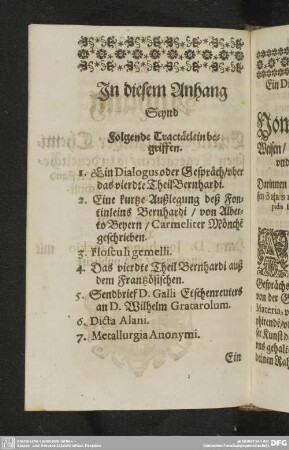 In diesem Anhang
Seynd
Folgende Tractätlein be-
griffen.
1. Ein Dialogus oder Gespräch/ vber
das vierdte Theil Bernhardi.
2. Eine kurtze Außlegung deß Fon-
tinleins Bernhardi / von Alber-
to Beyern / Carmeliter Mönchē
geschrieben.
3. Flosculi gemelli.
4. Das vierdte Theil Bernhardi auß
dem Frantzösischen.
5. Sendbrieff D. Galli Etschenreuters
an D. Wilhelm Gratarolum.
6. Dicta Alani.
7. Metallurgia Anonymi.
Ein
Ein Di
Von
Wesen/
vnd
Darinnen
Gesprächs
von der G
Materia, v
der Kunst
deinen Rah